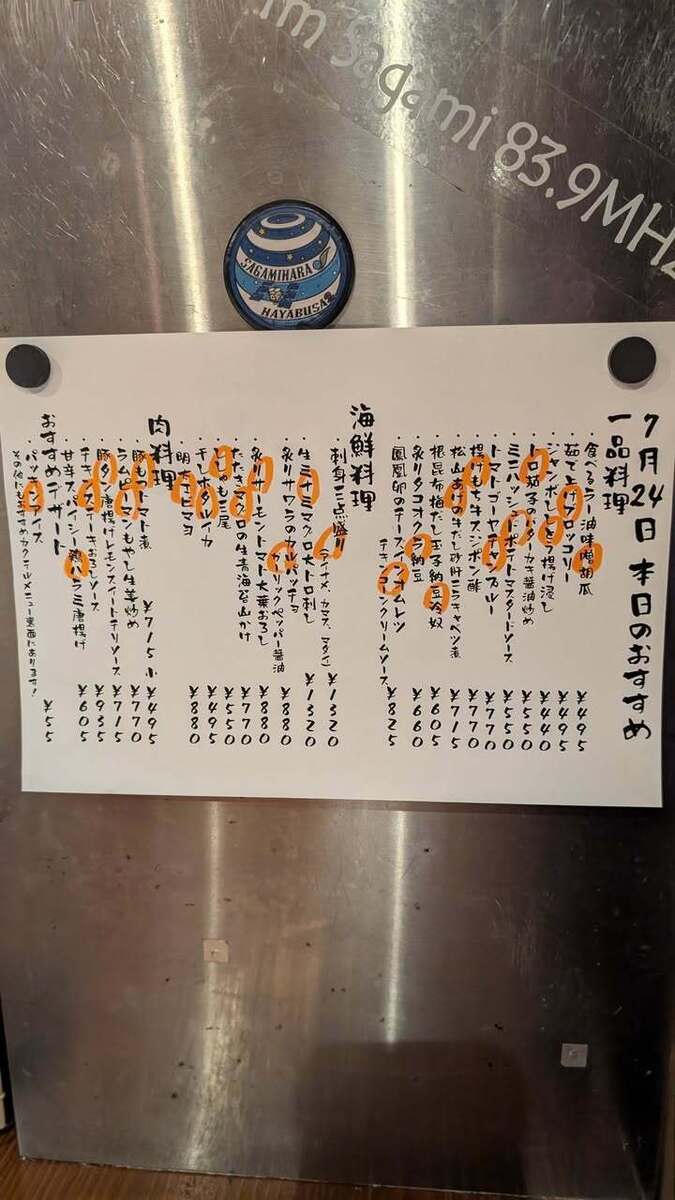 fm Sagami 83.9MHz
SAGAMIHARA
HAYABUSA2
7月24日 本日のおすすめ
一品料理
・食べるラー油味噌胡瓜 ¥495
・茹で上げブロッコリー ¥495
・ジャンボししとう揚げ浸し ¥440
・トロ茄子のバターカキ醤油炒め ¥550
・ミニハッシュドポテトマスタードソース ¥550
・トマトゴーヤチャンプルー ¥770
・揚げもちキスジポン酢 ¥770
・松山あげの牛だし砂肝ニラキャベツ煮 ¥715
・根昆布梅だし玉子納豆冷奴 ¥605
・炙りタコオクラ納豆 ¥660
・鳳凰卵のテースイオムレツ
チキンコンクリームソース ¥825
海鮮料理
・刺身三点盛り(アイナメ、カマス、マダイ) ¥1320
・生ミナミマグロ大トロ刺し ¥1320
・炙りサワラのカルパッチョ
ガーリックペッパー醤油 ¥880
・炙りサーモントマト大葉おろし ¥880
・たたきマグロの生青海苔山かけ ¥770
・ししゃも 尾 ¥550
・干しホタルイカ ¥495
・明太エビマヨ ¥880
肉料理
・豚もつトマト煮 ¥715 小¥495
・ラムピーマンもやし生姜炒め ¥770
・豚タン唐揚げレモンスイートチリソース ¥715
・チキンステーキおろしソース ¥935
・甘辛スパイシー鶏ハラミ唐揚げ ¥605
おすすめデザート
・パッキンアイス ¥55
その他にもおすすめカクテルメニュー裏面にあります!